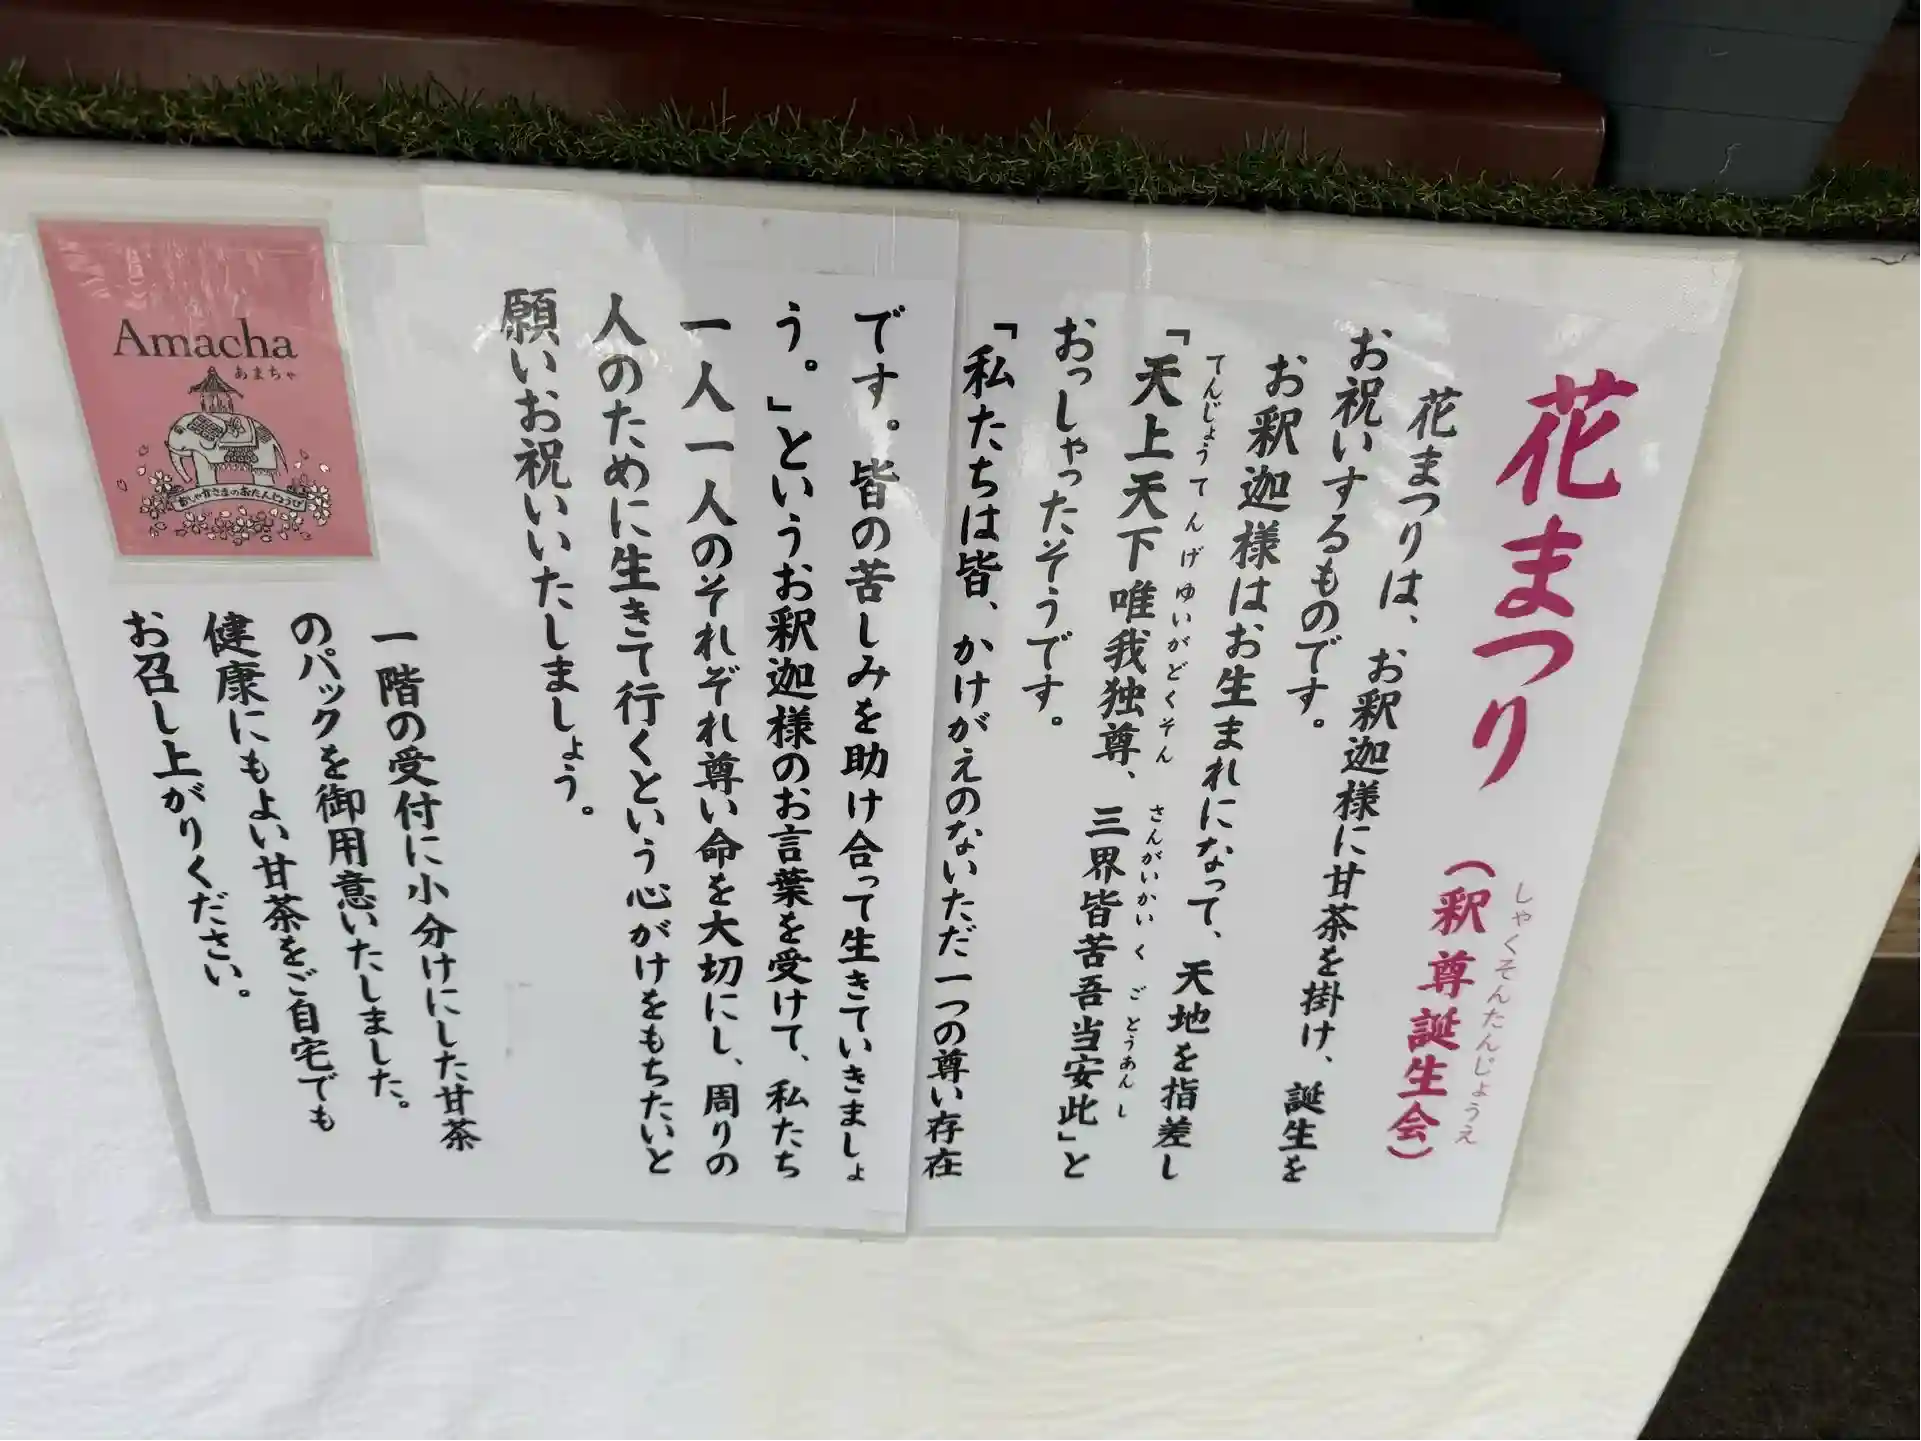 花まつり（釈尊誕生会）
しゃくそんたんじょうえ
花まつりは、お釈迦様に甘茶を掛け、誕生を
お祝いするものです。
お釈迦様はお生まれになって、天地を指差し
てんじょうてんげゆいがどくそん さんがいかいく ごとうあんし
「天上天下唯我独尊、三界皆苦吾当安此」と
おっしゃったそうです。
「私たちは皆、かけがえのないただ一つの尊い存在
です。皆の苦しみを助け合って生きていきましょ
う。」というお釈迦様のお言葉を受けて、私たち
一人一人のそれぞれ尊い命を大切にし、周りの
人のために生きて行くという心がけをもちたいと
願いお祝いいたしましょう。
一階の受付に小分けにした甘茶
のパックを御用意いたしました。
健康にもよい甘茶をご自宅でも
お召し上がりください。
Amacha
あまちゃ
おしゃかさまのおたんじょうび